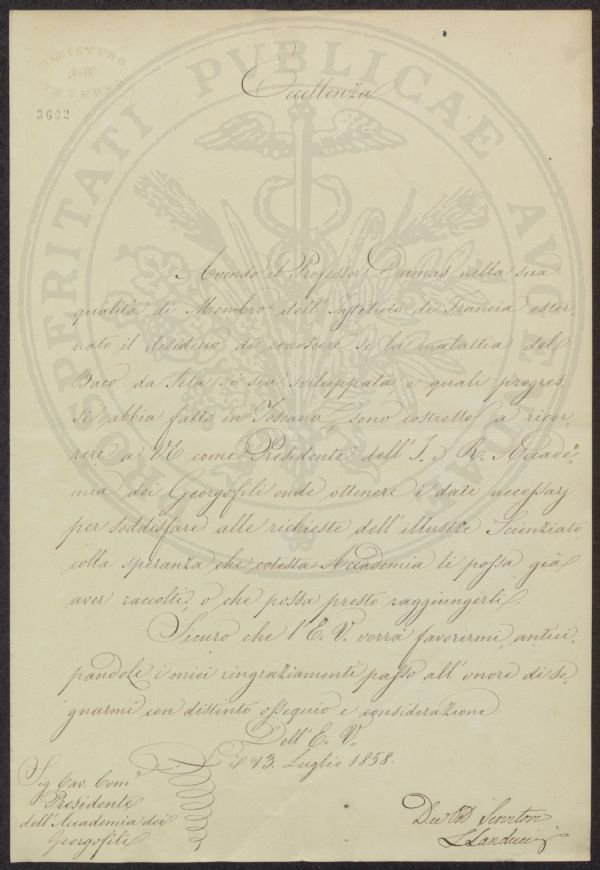 MINISTERO
dell'
INTERNO
3632
PROSPERITATI PUBLICAE AUGENDAE
Eccellenza
Avendo il Professor Dumas nella sua
qualità di Membro dell'Instituto di Francia ester-
nato il desiderio di conoscere se la malattia del
Baco da Seta si sia sviluppata e quali progres
si abbia fatto in Toscana, sono costretto a ricor-
rere a come Presidente dell'I. e R. Accade-
mia dei Georgofili onde ottenere i dati necessarj
per soddisfare alle richieste dell'illustre Scienziato
colla speranza che cotesta Accademia li possa già
aver raccolti, o che possa presto raggiungerli.
Sicuro che l'E. V. vorrà favorirmi, antici-
pandole i miei ringraziamenti passo all'onore di se-
gnarmi con distinto ossequio e considerazione
Dell'E. V.
Lì 13. Luglio 1858.
Sig Cav. Com
Presidente
dell'Accademia dei
Georgofili
Servitore
Landucci